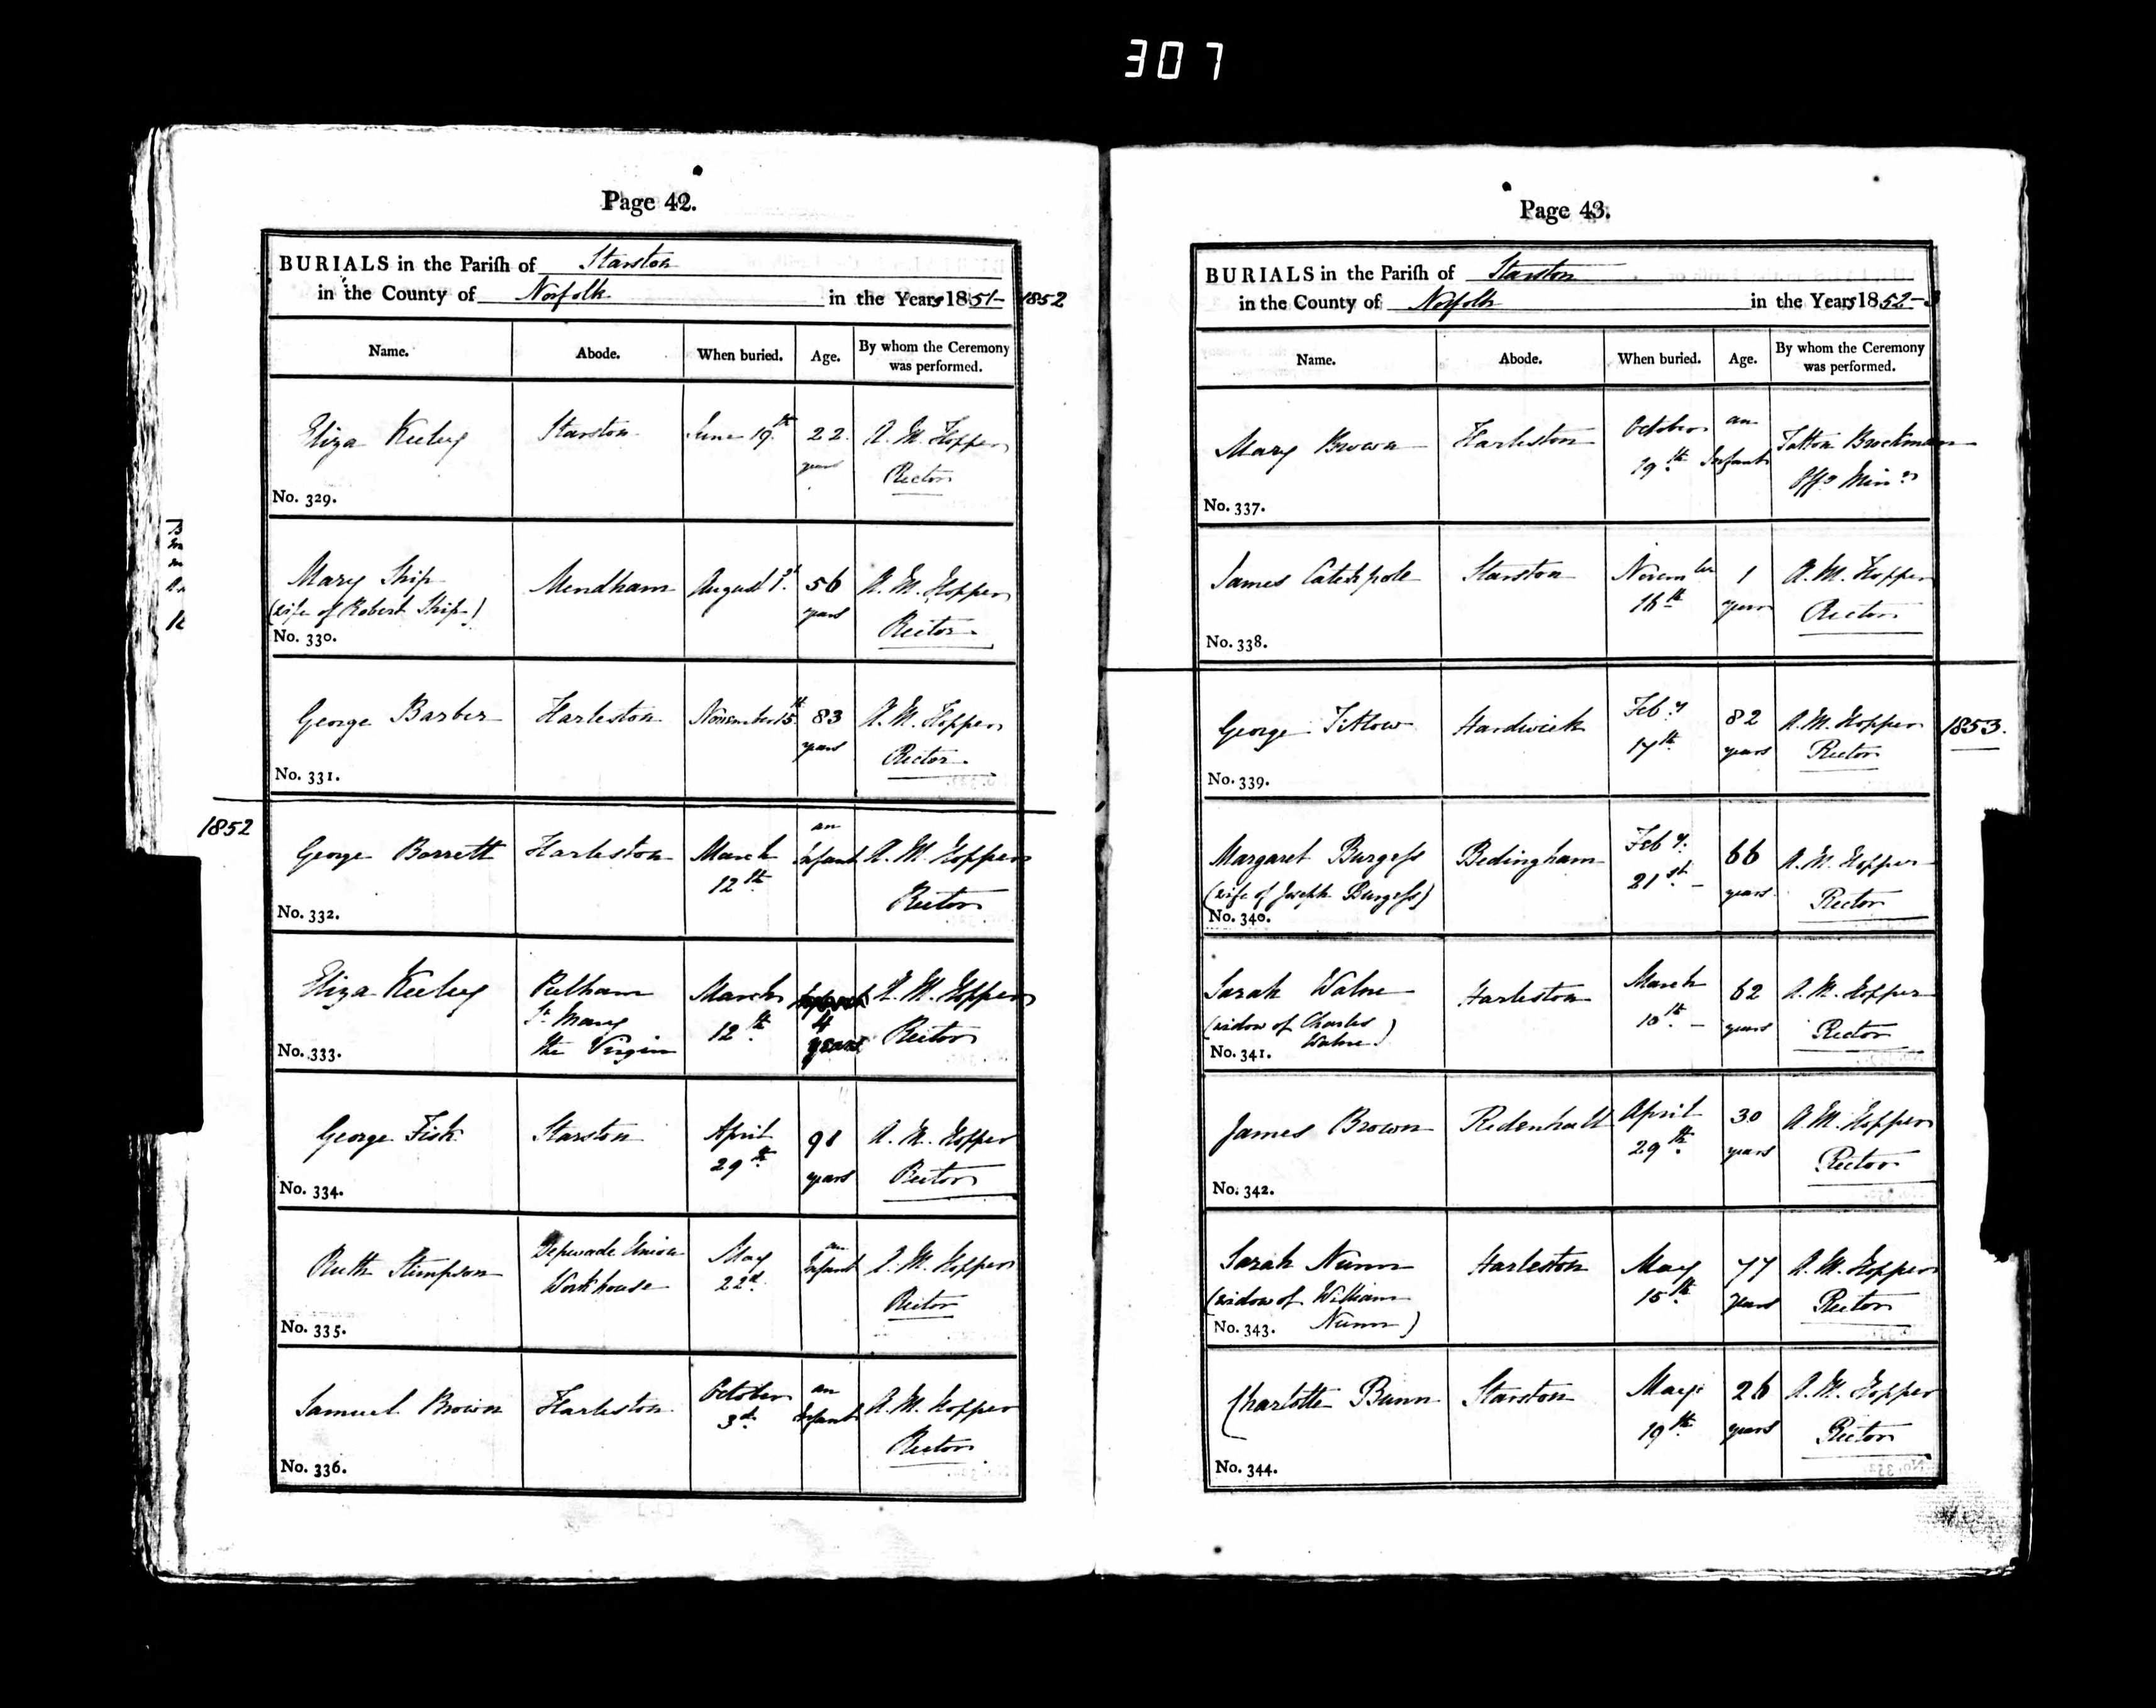 307
Page 42.
BURIALS in the Parish of Starston
in the County of Norfolk in the Years 1851- 1852
Name. Abode. When buried. Age. By whom the Ceremony was performed.
Eliza Keeley Starston June 19th 22 years A. M. Hopper Rector
No. 329.
Mary Ship Mendham August 1st 56 years A. M. Hopper Rector
(wife of Robert Ship)
No. 330.
George Barber Harleston November 15th 83 years A. M. Hopper Rector
No. 331.
1852
George Barrett Harleston March 12th an Infant A. M. Hopper Rector
No. 332.
Eliza Keeley Pulham St. Mary the Virgin March 12th 4 years A. M. Hopper Rector
No. 333.
George Fisk Starston April 29th 91 years A. M. Hopper Rector
No. 334.
Ruth Stimpson Depwade Union Workhouse May 22d an Infant A. M. Hopper Rector
No. 335.
Samuel Brown Harleston October 3d an Infant A. M. Hopper Rector
No. 336.
Page 43.
BURIALS in the Parish of Starston
in the County of Norfolk in the Years 1852-3
Name. Abode. When buried. Age. By whom the Ceremony was performed.
Mary Brown Harleston October 19th an Infant Tatton Brockman Offg Minr
No. 337.
James Catchpole Starston November 16th 1 year A. M. Hopper Rector
No. 338.
George Titlow Hardwick Feby 17th 82 years A. M. Hopper Rector 1853.
No. 339.
Margaret Burgess Bedingham Feby 21st 66 years A. M. Hopper Rector
(wife of Joseph Burgess)
No. 340.
Sarah Walne Harleston March 10th 62 years A. M. Hopper Rector
(widow of Charles Walne)
No. 341.
James Brown Redenhall April 29th 30 years A. M. Hopper Rector
No. 342.
Sarah Nunn Harleston May 15th 77 years A. M. Hopper Rector
(widow of William Nunn)
No. 343.
Charlotte Bunn Starston May 19th 26 years A. M. Hopper Rector
No. 344.